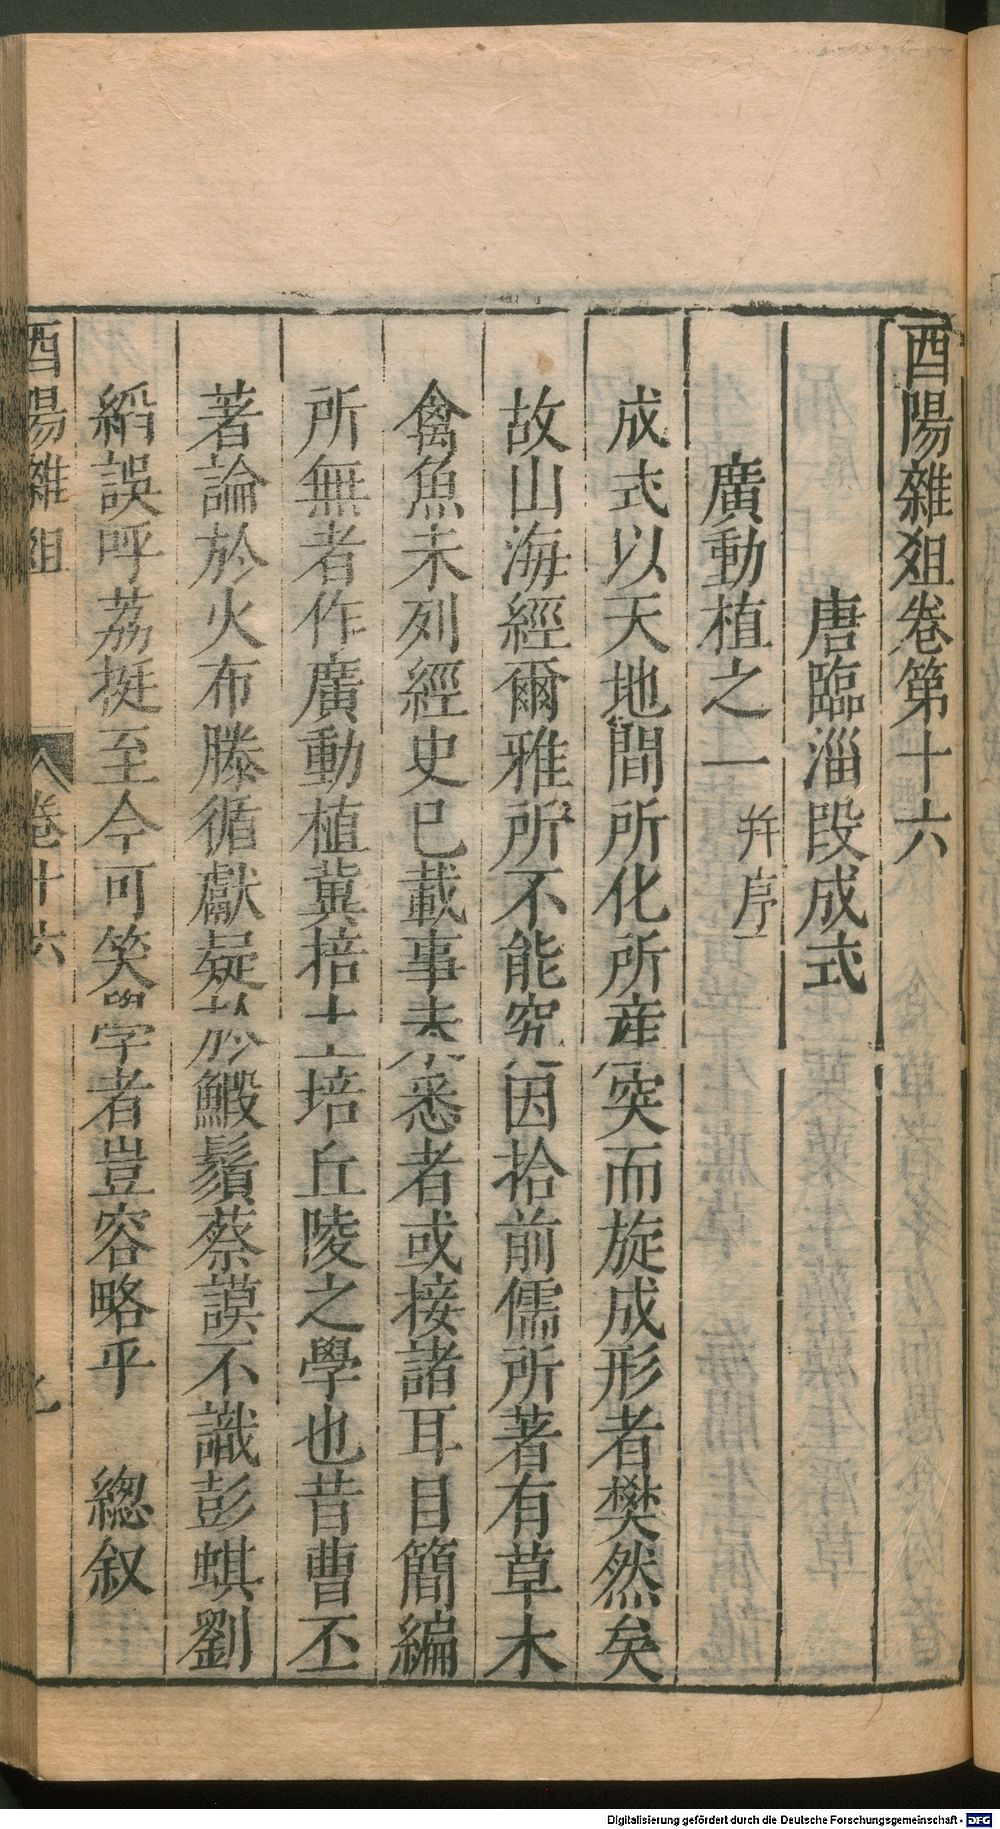 酉陽雜爼卷第十六
唐臨淄段成式
廣動植之一 并序
成式以天地間所化所産突而旋成形者樊然矣
故山海經爾雅所不能究因拾前儒所著有草木
禽魚未列經史已載事未悉者或接諸耳目簡編
所無者作廣動植冀掊土培丘陵之學也昔曹丕
著論於火布滕循獻疑於鰕鬚蔡謨不識彭蜞劉
縚誤呼荔挺至今可笑學者豈容略乎 總叙
酉陽雜爼 卷十六
Digitalisierung gefördert durch die Deutsche Forschungsgemeinschaft - DFG